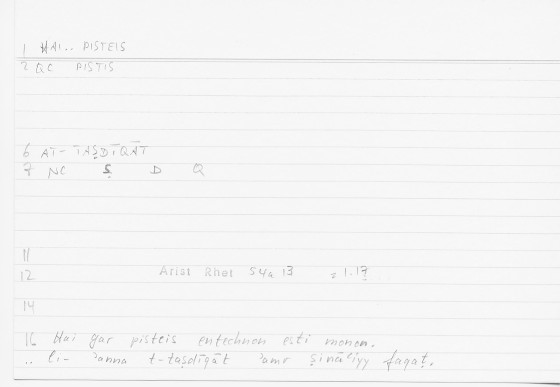 1 HAI.. PISTEIS
2 QC PISTIS
6 AT-TAṢDĪQĀT
7 NC Ṣ D Q
11
12 Arist Rhet 54a 13 = 1.17
14
16 Hai gar pisteis entechnon esti monon.
.. li- ʾanna t-taṣdīqāt ʾamr ṣināʿiyy faqaṭ.